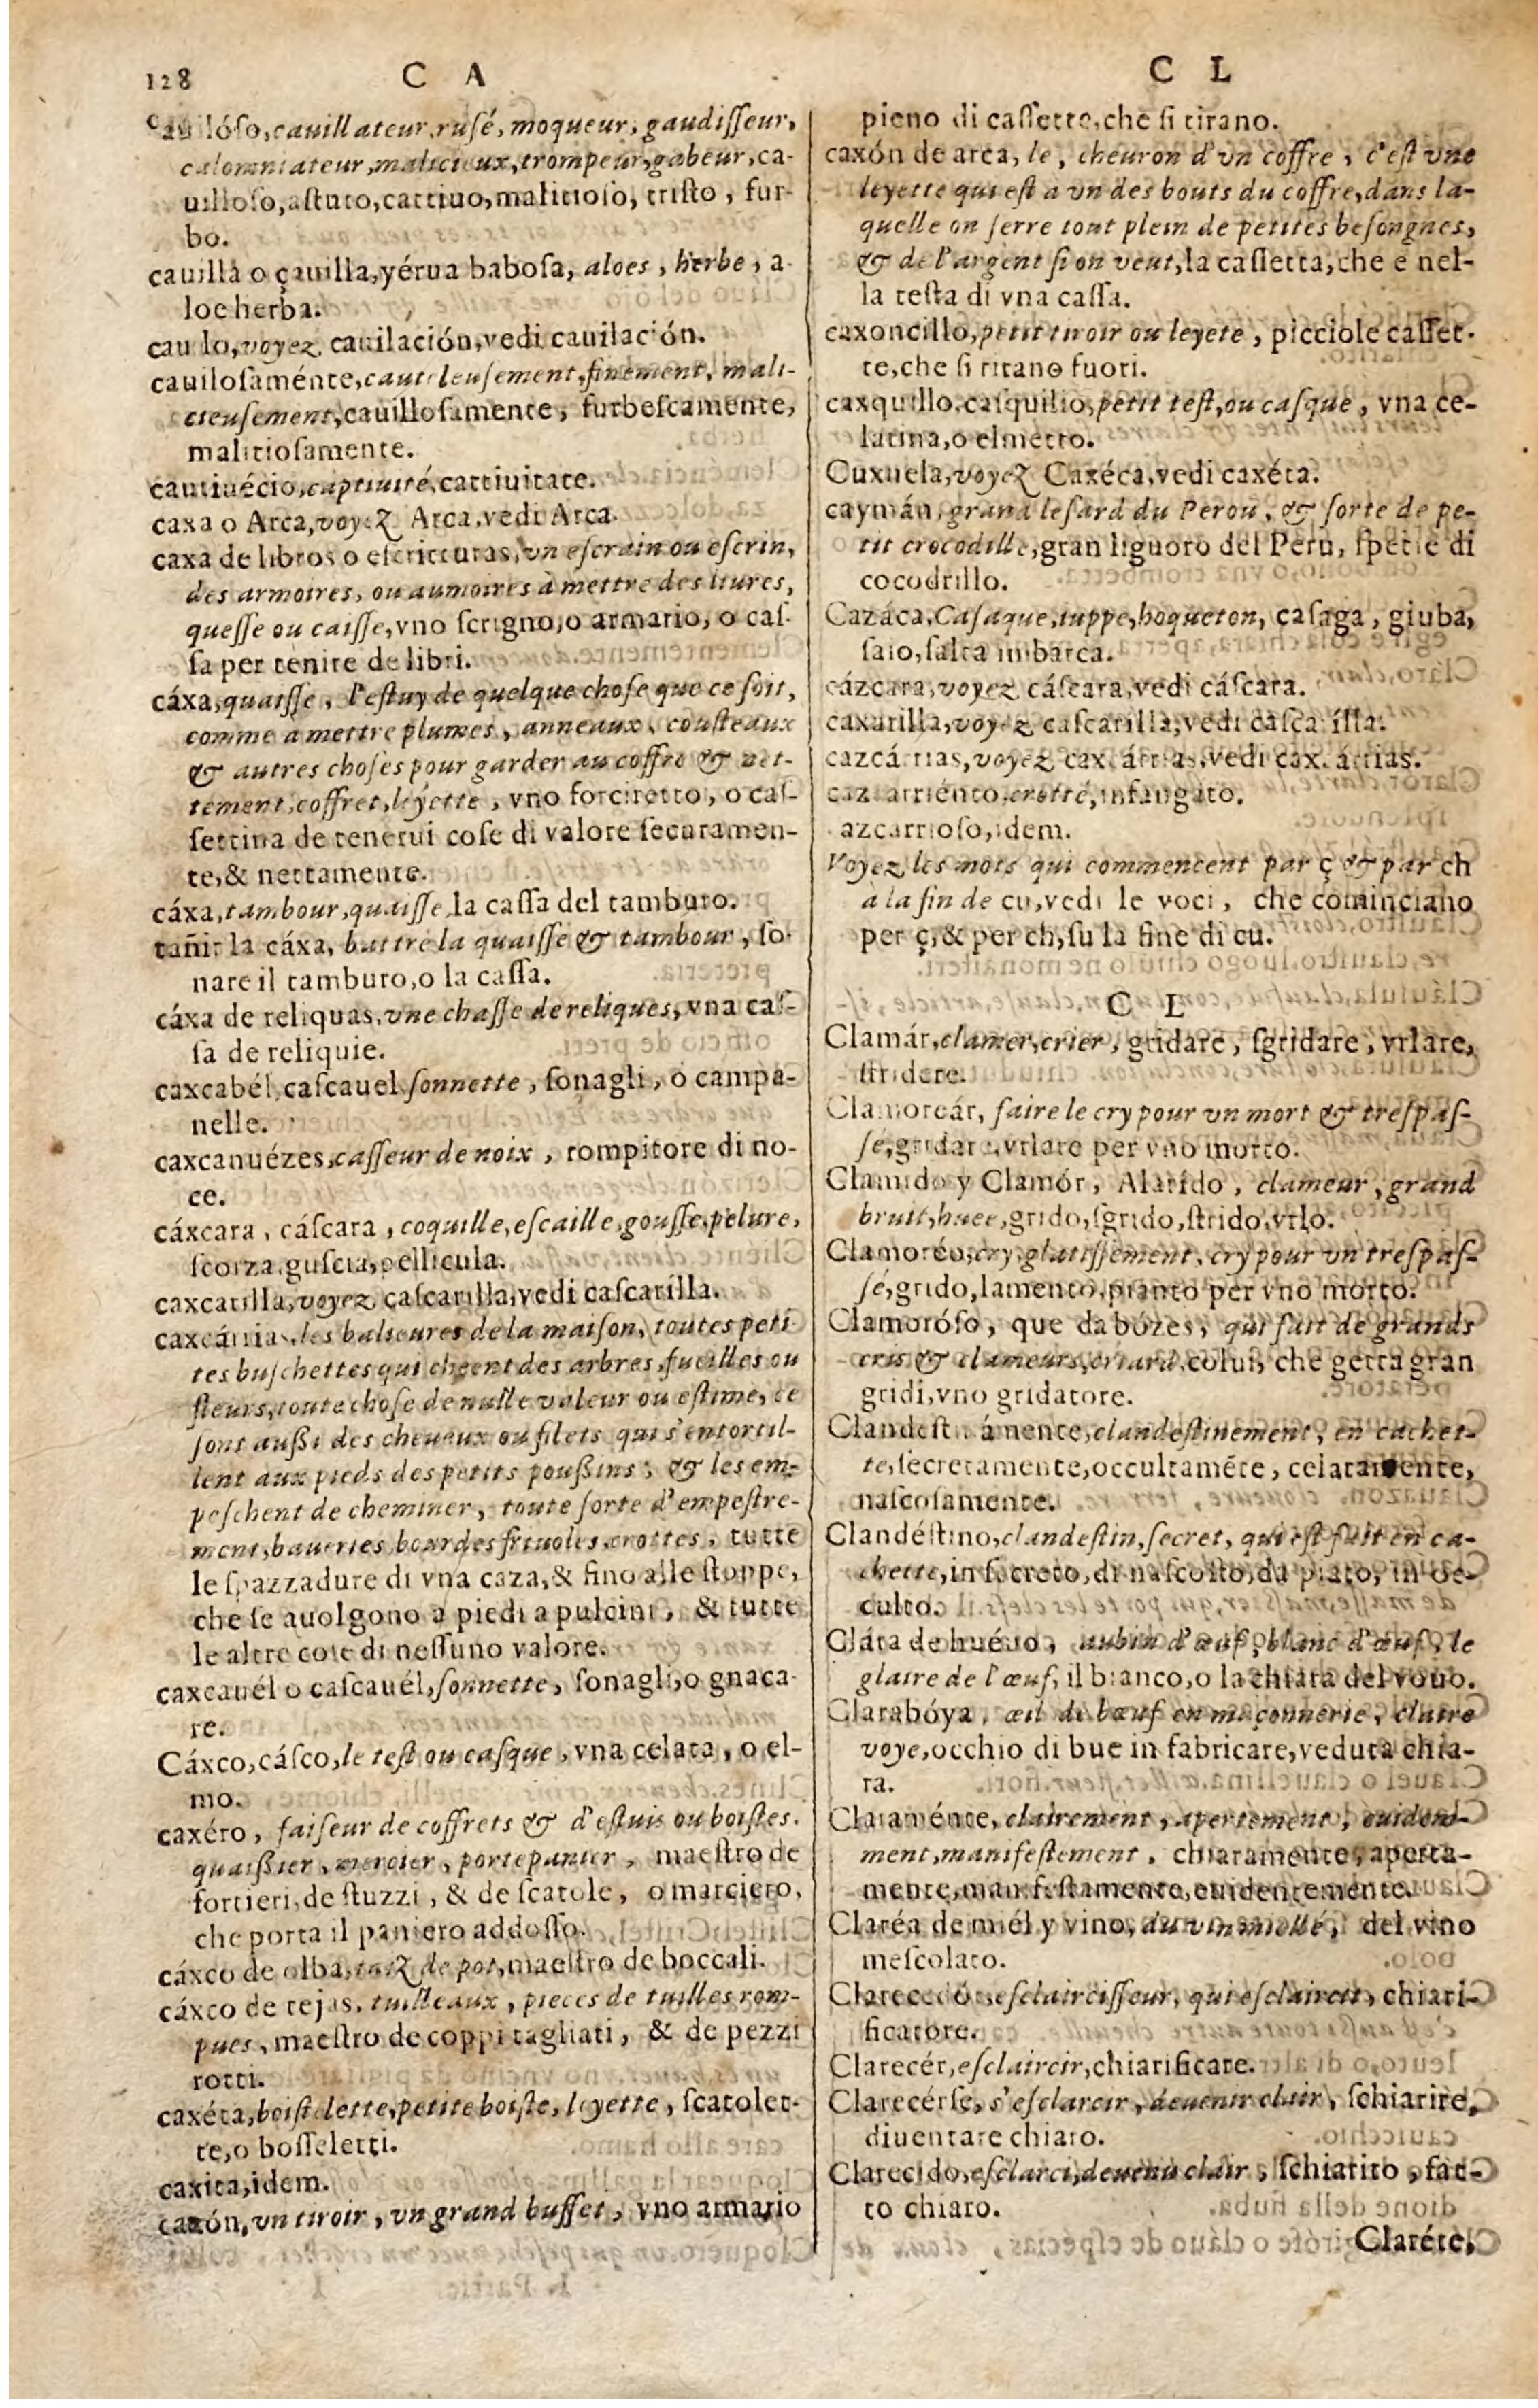 128
C A
C L
cauilóſo, cauillateur, ruſé, moqueur, gaudiſſeur,
calomniateur, malicieux, trompeur, gabeur, ca-
uilloſo, aſtuto, cattiuo, malitioſo, triſto, fur-
bo.
cauillà o çauilla, yérua baboſa, aloes, herbe, a-
loe herba.
caulo, voyez cauilación, vedi cauilación.
cauiloſaménte, cauteleuſement, finement, mali-
cieuſement, cauilloſamente, furbeſcamente,
malitioſamente.
cautiuécio, captiuité, cattiuitate.
caxa o Arca, voyez Arca, vedi Arca.
caxa de libros o eſcritturas, vn eſcrain ou eſcrin,
des armoires, ou aumoires à mettre des liures,
queſſe ou caiſſe, vno ſcrigno, o armario, o caſ-
ſa per tenire de libri.
cáxa, quaiſſe, l'eſtuy de quelque choſe que ce ſoit,
comme a mettre plumes, anneaux, couſteaux
& autres choſes pour garder au coffre & net-
tement, coffret, leyette, vno forciretto, o caſ-
ſettina de tenerui coſe di valore ſecuramen-
te, & nettamente.
cáxa, tambour, quaiſſe, la caſſa del tamburo.
tañir la cáxa, battre la quaiſſe & tambour, ſo-
nare il tamburo, o la caſſa.
cáxa de reliquas, vne chaſſe de reliques, vna caſ-
ſa de reliquie.
caxcabél, caſcauel ſonnette, ſonagli, o campa-
nelle.
caxcanuézes, caſſeur de noix, rompitore di no-
ce.
cáxcara, cáſcara, coquille, eſcaille, gouſſe, pelure,
ſcorza, guſcia, pellicula.
caxcarilla, voyez caſcarilla, vedi caſcarilla.
caxcárrias, les balieures de la maiſon, toutes peti
tes buſchettes qui cheent des arbres, fueilles ou
fleurs, toute choſe de nulle valeur ou eſtime, ce
ſont auſsi des cheueux ou filets qui s'entortil-
lent aux pieds des petits pouſsins, & les em-
peſchent de cheminer, toute ſorte d'empeſtre-
ment, baueries, bourdes friuoles, crottes, tutte
le ſpazzadure di vna caza, & fino alle ſtoppe,
che ſe auolgono a piedi a pulcini, & tutte
le altre coſe di neſſuno valore.
caxcauél o caſcauél, ſonnette, ſonagli, o gnaca-
re.
Cáxco, cáſco, le teſt ou caſque, vna celata, o el-
mo.
caxéro, faiſeur de coffrets & d'eſtuis ou boiſtes.
quaiſsier, mercier, portepanier, maeſtro de
fortieri, de ſtuzzi, & de ſcatole, o marciero,
che porta il paniero addoſſo.
cáxco de olba, taiz de pot, maeſtro de boccali.
cáxco de tejas, tuilleaux, pieces de tuilles rom-
pues, maeſtro de coppi tagliati, & de pezzi
rotti.
caxéta, boiſtelette, petite boiſte, leyette, ſcatolet-
te, o boſſeletti.
caxita, idem.
caxón, vn tiroir, vn grand buffet, vno armario
pieno di caſſette, che ſi tirano.
caxón de arca, le, cheuron d'vn coffre, c'eſt vne
leyette qui eſt a vn des bouts du coffre, dans la-
quelle on ſerre tout plein de petites beſongnes,
& de l'argent ſi on veut, la caſſetta, che è nel-
la teſta di vna caſſa.
caxoncillo, petit tiroir ou leyete, picciole caſſet-
te, che ſi tirano fuori.
caxquillo, caſquilio, petit teſt, ou caſque, vna ce-
latina, o elmetto.
Cuxuela, voyez Caxéca, vedi caxéta.
caymán, grand leſard du Perou, & ſorte de pe-
tit crocodille, gran liguoro del Peru, ſpetie di
cocodrillo.
Cazáca, Caſaque, iuppe, hoqueton, caſaga, giuba,
ſaio, ſalta imbarca.
cázcara, voyez cáſcara, vedi cáſcara.
caxarilla, voyez caſcarilla, vedi caſca illa.
cazcárrias, voyez cax. árrias, vedi cax. árrias.
caz arriénto, crotté, infangato.
azcarrioſo, idem.
Voyez les mots qui commencent par ç & par ch
à la fin de cu, vedi le voci, che cominciano
per ç, & per ch, ſu la fine di cu.
C L
Clamár, clamer, crier, gridare, ſgridare, vrlare,
ſtridere.
Clamoreár, faire le cry pour vn mort & treſpaſ-
ſé, gridare, vrlare per vno morto.
Clamido y Clamór, Alarido, clameur, grand
bruit, huee, grido, ſgrido, ſtrido, vrlo.
Clamoréo, cry, glatiſſement, cry pour vn treſpaſ-
ſé, grido, lamento, pianto per vno morto.
Clamoróſo, que da bozes, qui fait de grands
cris & clameurs, criard, colui, che getta gran
gridi, vno gridatore.
Clandeſt ámente, clandeſtinement, en cachet-
te, ſecretamente, occultaméte, celatamente,
naſcoſamente.
Clandéſtino, clandeſtin, ſecret, qui eſt fait en ca-
chette, in ſecreto, di naſcoſto, da piato, in oc-
culto.
Clára de huéuo, aubin d'œuf, blanc d'œuf, le
glaire de l'œuf, il bianco, o la chiara del vouo.
Clarabóya, œil de bœuf en maçonnerie, claire
voye, occhio di bue in fabricare, veduta chia-
ra.
Claraménte, clairement, apertement, euidem-
ment, manifeſtement, chiaramente, aperta-
mente, manifeſtamente, euidentemente.
Claréa de miél y vino, du vin miellé, del vino
meſcolato.
Clarecedór, eſclairciſſeur, qui eſclaircit, chiari-
ficatore.
Clarecér, eſclaircir, chiarificare.
Clarecérſe, s'eſclarcir, deuenir clair, ſchiarire,
diuentare chiaro.
Clarecido, eſclarci, deuenu clair, ſchiarito, fat-
to chiaro.
Claréte,